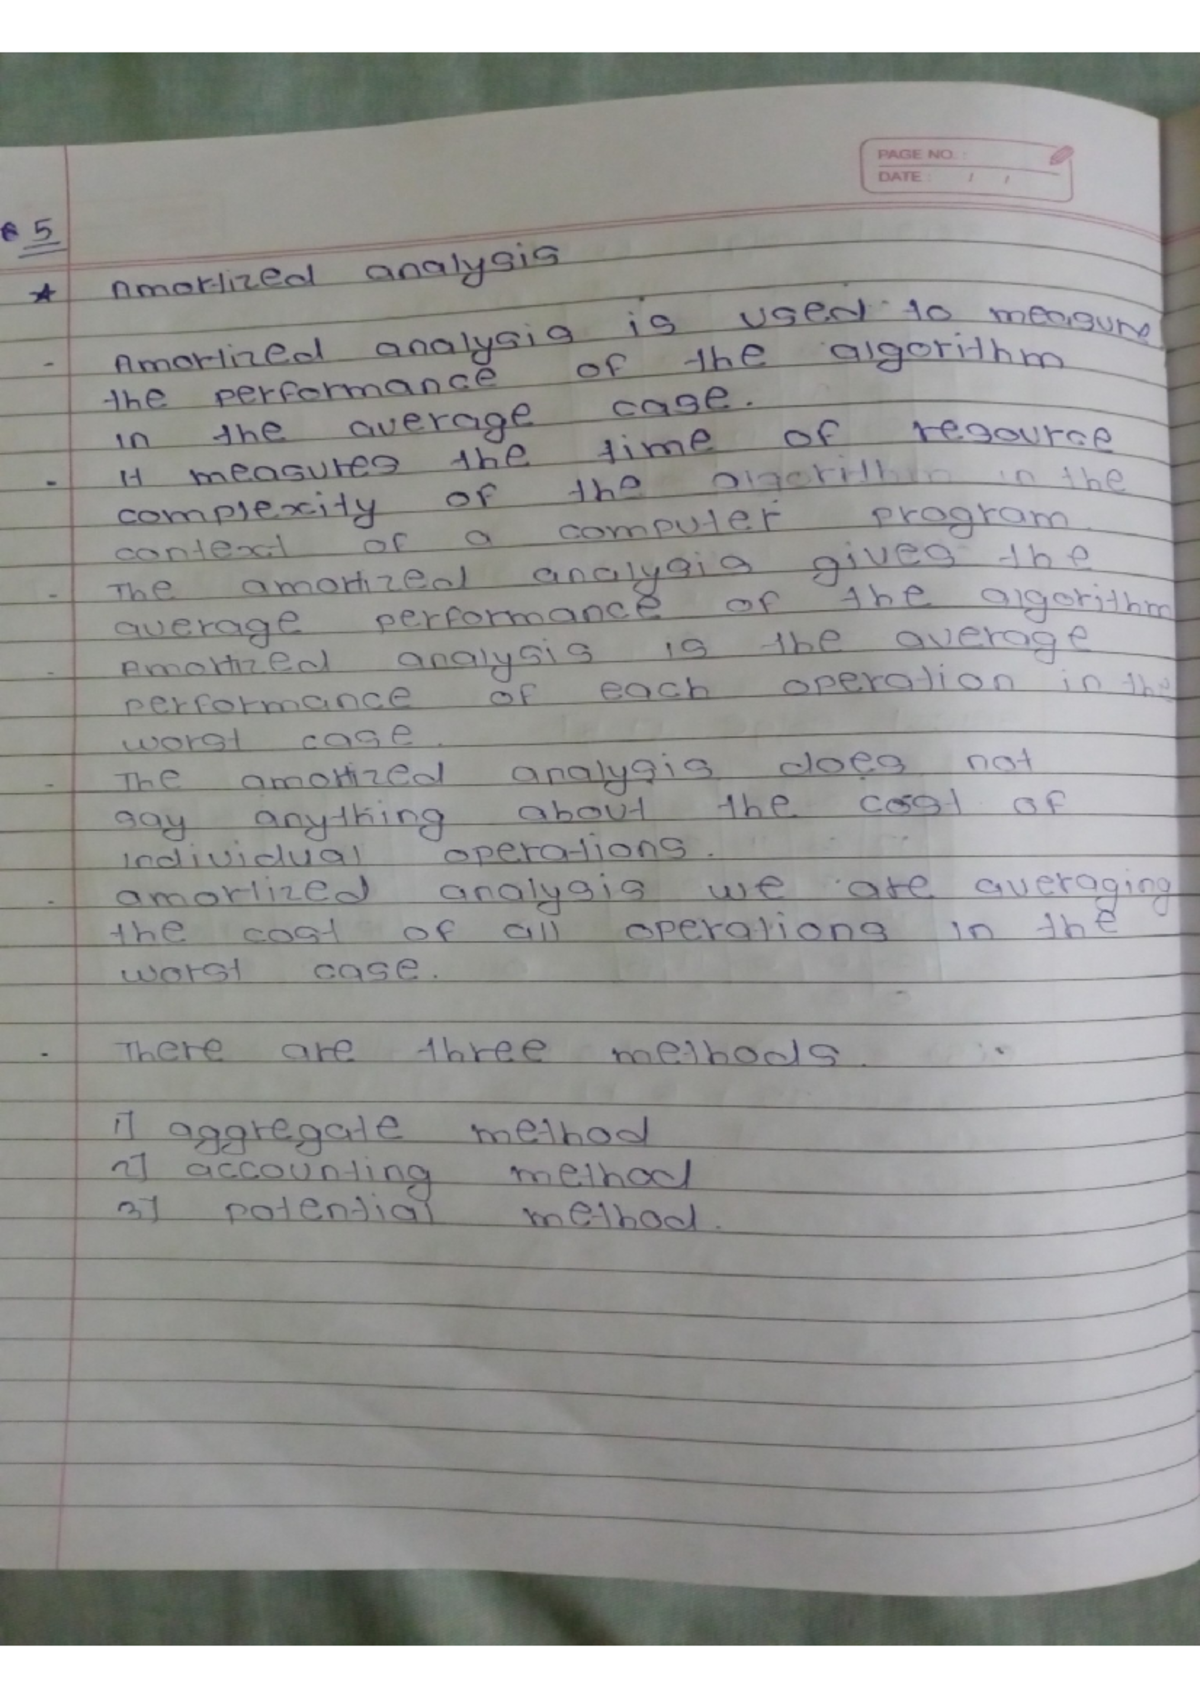 PAGE NO. :
DATE : / /
5
★ Amortized analysis
- Amortized analysis is used to measure
the performance of the algorithm
in the average case.
- It measures the time of resource
complexity of the algorithm in the
context of a computer program.
- The amortized analysis gives the
average performance of the algorithm
- Amortized analysis is the average
performance of each operation in the
worst case.
- The amortized analysis does not
say anything about the cost of
individual operations.
- amortized analysis we are averaging
the cost of all operations in the
worst case.
- There are three methods.
1] aggregate method
2] accounting method
3] potential method.